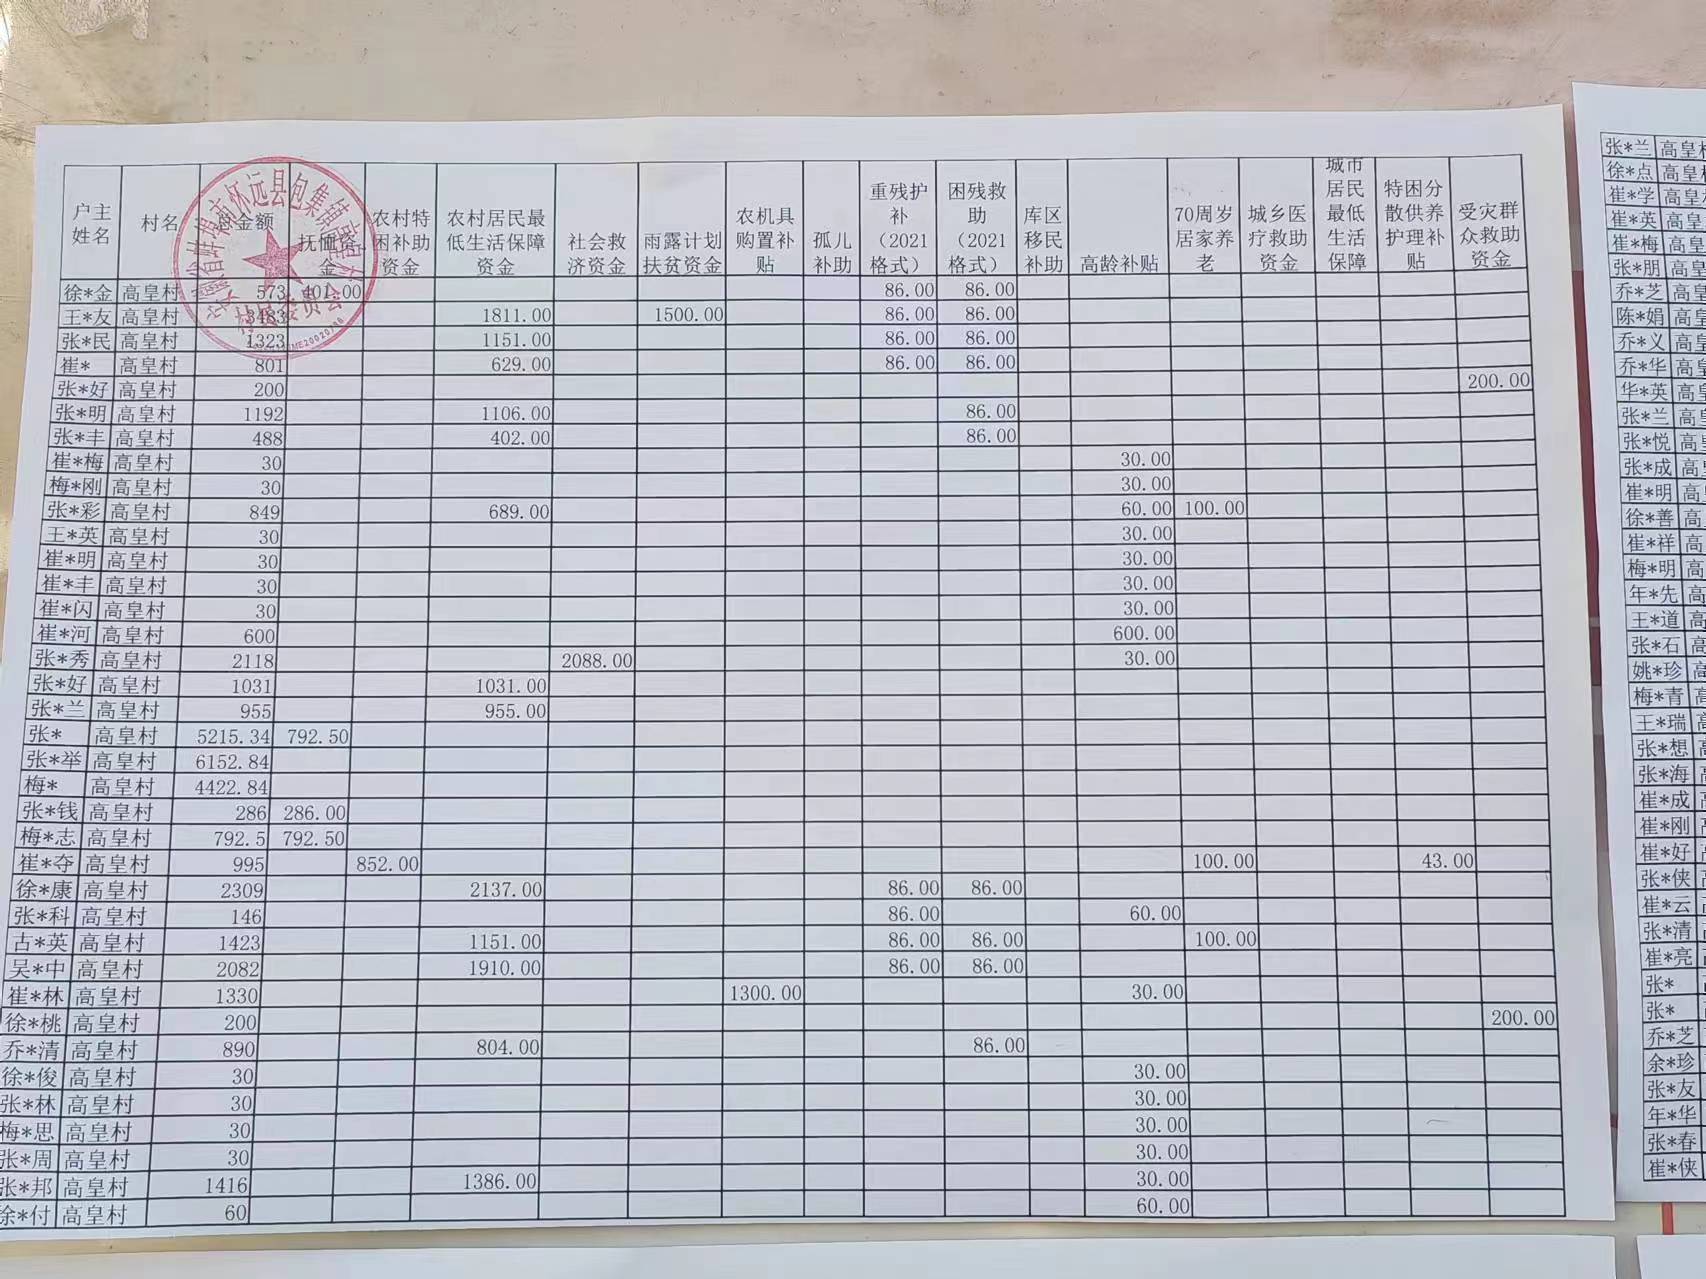 户主姓名 村名 总金额 抚恤资金 农村特困补助资金 农村居民最低生活保障资金 社会救济资金 雨露计划扶贫资金 农机具购置补贴 孤儿补助 重残护补（2021格式） 困残救助（2021格式） 库区移民补助 高龄补贴 70周岁居家养老 城乡医疗救助资金 城市居民最低生活保障 特困分散供养护理补贴 受灾群众救助资金
徐*金 高皇村 573 401.00 86.00 86.00
王*友 高皇村 3483 1811.00 1500.00 86.00 86.00
张*民 高皇村 1323 1151.00 86.00 86.00
崔* 高皇村 801 629.00 86.00 86.00
张*好 高皇村 200 200.00
张*明 高皇村 1192 1106.00 86.00
张*丰 高皇村 488 402.00 86.00
崔*梅 高皇村 30 30.00
梅*刚 高皇村 30 30.00
张*彩 高皇村 849 689.00 60.00 100.00
王*英 高皇村 30 30.00
崔*明 高皇村 30 30.00
崔*丰 高皇村 30 30.00
崔*闪 高皇村 30 30.00
崔*河 高皇村 600 600.00
张*秀 高皇村 2118 2088.00 30.00
张*好 高皇村 1031 1031.00
张*兰 高皇村 955 955.00
张* 高皇村 5215.34 792.50
张*举 高皇村 6152.84
梅* 高皇村 4422.84
张*钱 高皇村 286 286.00
梅*志 高皇村 792.5 792.50
崔*夺 高皇村 995 852.00 100.00 43.00
徐*康 高皇村 2309 2137.00 86.00 86.00
张*科 高皇村 146 86.00 60.00
古*英 高皇村 1423 1151.00 86.00 86.00 100.00
吴*中 高皇村 2082 1910.00 86.00 86.00
崔*林 高皇村 1330 1300.00 30.00
徐*桃 高皇村 200 200.00
乔*清 高皇村 890 804.00 86.00
徐*俊 高皇村 30 30.00
张*林 高皇村 30 30.00
梅*思 高皇村 30 30.00
张*周 高皇村 30 30.00
张*邦 高皇村 1416 1386.00 30.00
徐*付 高皇村 60 60.00
张*兰 高皇
徐*点 高皇
崔*学 高皇
崔*英 高皇
崔*梅 高皇
张*朋 高皇
乔*芝 高皇
陈*娟 高皇
乔*义 高皇
乔*华 高皇
华*英 高皇
张*兰 高皇
张*悦 高
张*成 高
崔*明 高
徐*善 高
崔*祥 高
梅*明 高
年*先 高
王*道 高
张*石 高
姚*珍 高
梅*青 高
王*瑞
张*想
张*海
崔*成
崔*刚
崔*好
张*侠
崔*云
张*清
崔*亮
张*
张*
乔*芝
余*珍
张*友
年*华
张*春
崔*侠